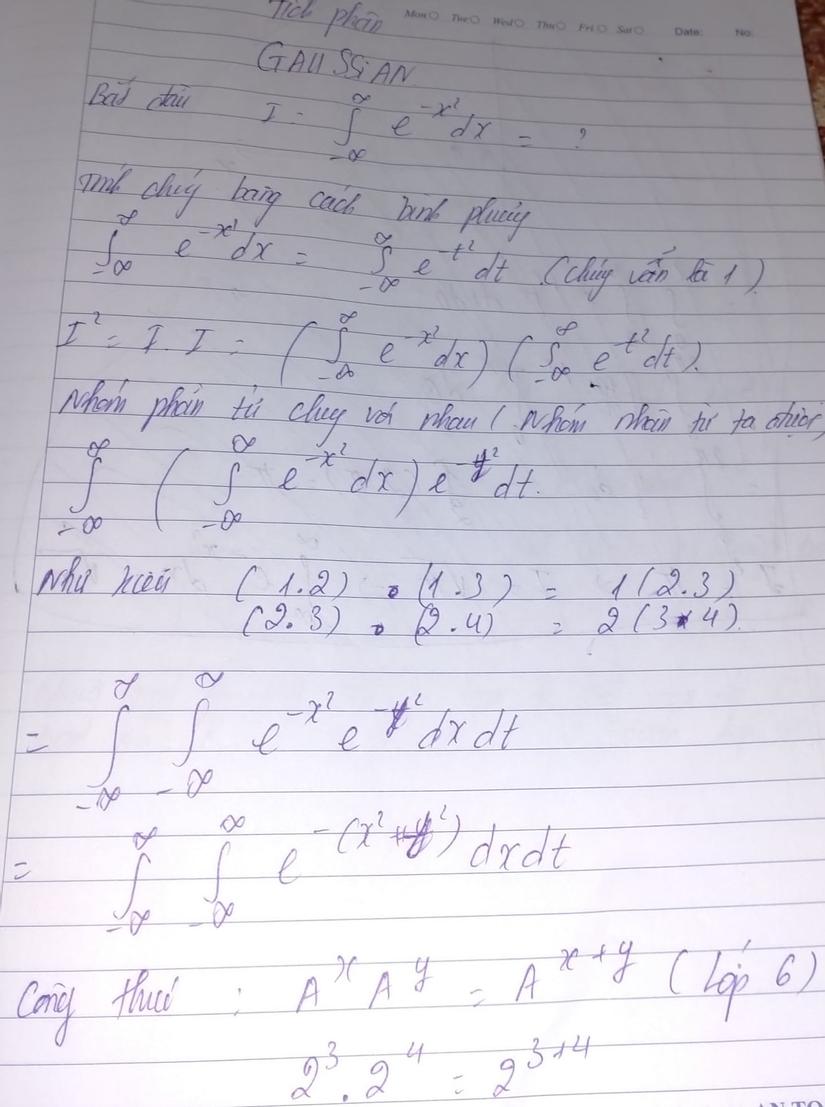 Tích phân Mon Tue Wed Thu Fri Sat Date: No:
GAUSSIAN
Bắt đầu I = ∫_{-∞}^{∞} e^{-x²} dx = ?
Tính chúng bằng cách bình phương
∫_{-∞}^{∞} e^{-x²} dx = ∫_{-∞}^{∞} e^{-t²} dt (chúng vẫn là 1)
I² = I . I = (∫_{-∞}^{∞} e^{-x²} dx) (∫_{-∞}^{∞} e^{-t²} dt).
Nhóm phân tử chung với nhau (Nhóm nhân tử ta được)
∫_{-∞}^{∞} (∫_{-∞}^{∞} e^{-x²} dx) e^{-y²} dt.
Như kiểu (1.2) . (1.3) = 1(2.3)
(2.3) . (2.4) = 2(3*4).
= ∫_{-∞}^{∞} ∫_{-∞}^{∞} e^{-x²} e^{-y²} dx dt
= ∫_{-∞}^{∞} ∫_{-∞}^{∞} e^{-(x²+y²)} dx dt
Công thức : A^x A^y = A^{x+y} (Lớp 6)
2³ . 2⁴ = 2^{3+4}